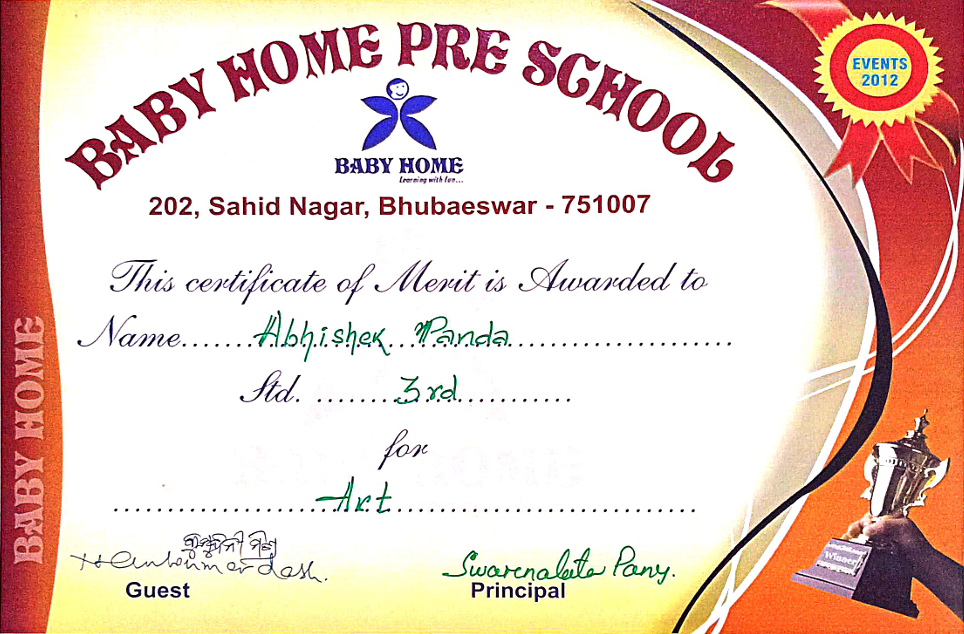 BABY HOME PRE SCHOOL
EVENTS
2012
BABY HOME
Learning with fun...
202, Sahid Nagar, Bhubaeswar - 751007
This certificate of Merit is Awarded to
Name.......Abhishek Panda.......
Std. .......3rd.......
for
.......Art.......
Swarenalata Pany.
Guest
Principal
BABY HOME
Winner